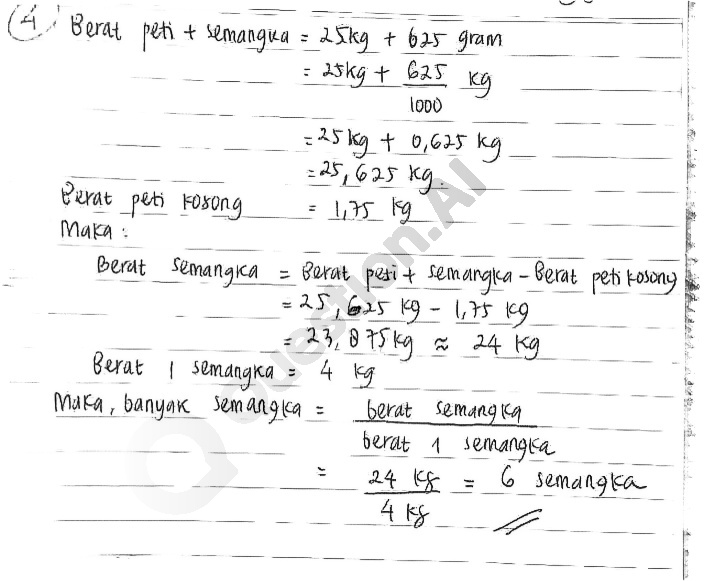 4 Berat peti + semangka = 25kg + 625 gram
= 25kg + 625/1000 kg
= 25kg + 0,625 kg
= 25,625 kg.
Berat peti kosong = 1,75 kg
Maka :
Berat semangka = Berat peti + semangka - Berat peti kosong
= 25,625 kg - 1,75 kg
= 23,875kg ≈ 24 kg
Berat 1 semangka = 4 kg
Maka, banyak semangka = berat semangka / berat 1 semangka
= 24 kg / 4 kg = 6 semangka
Question.AI